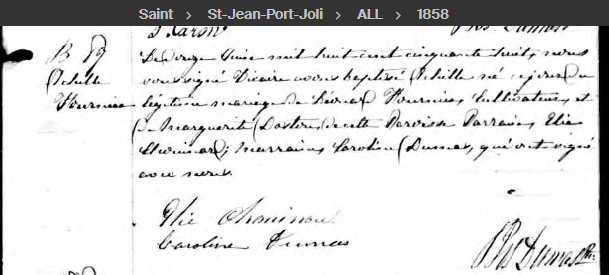 Saint > St-Jean-Port-Joli > ALL > 1858
B 59
Achille
Fournier
Le douze Juin mil huit cent cinquante huit, nous
soussigné Vicaire avons baptisé Achille né ce jour du
légitime mariage de Fournier, Cultivateur, et
de Marguerite de cette Paroisse Parrain, Elie
Chouinard; Marraine, Caroline Dumas, qui ont signé
avec nous.
Elie Chouinard
Caroline Dumas
Dumas Ptre